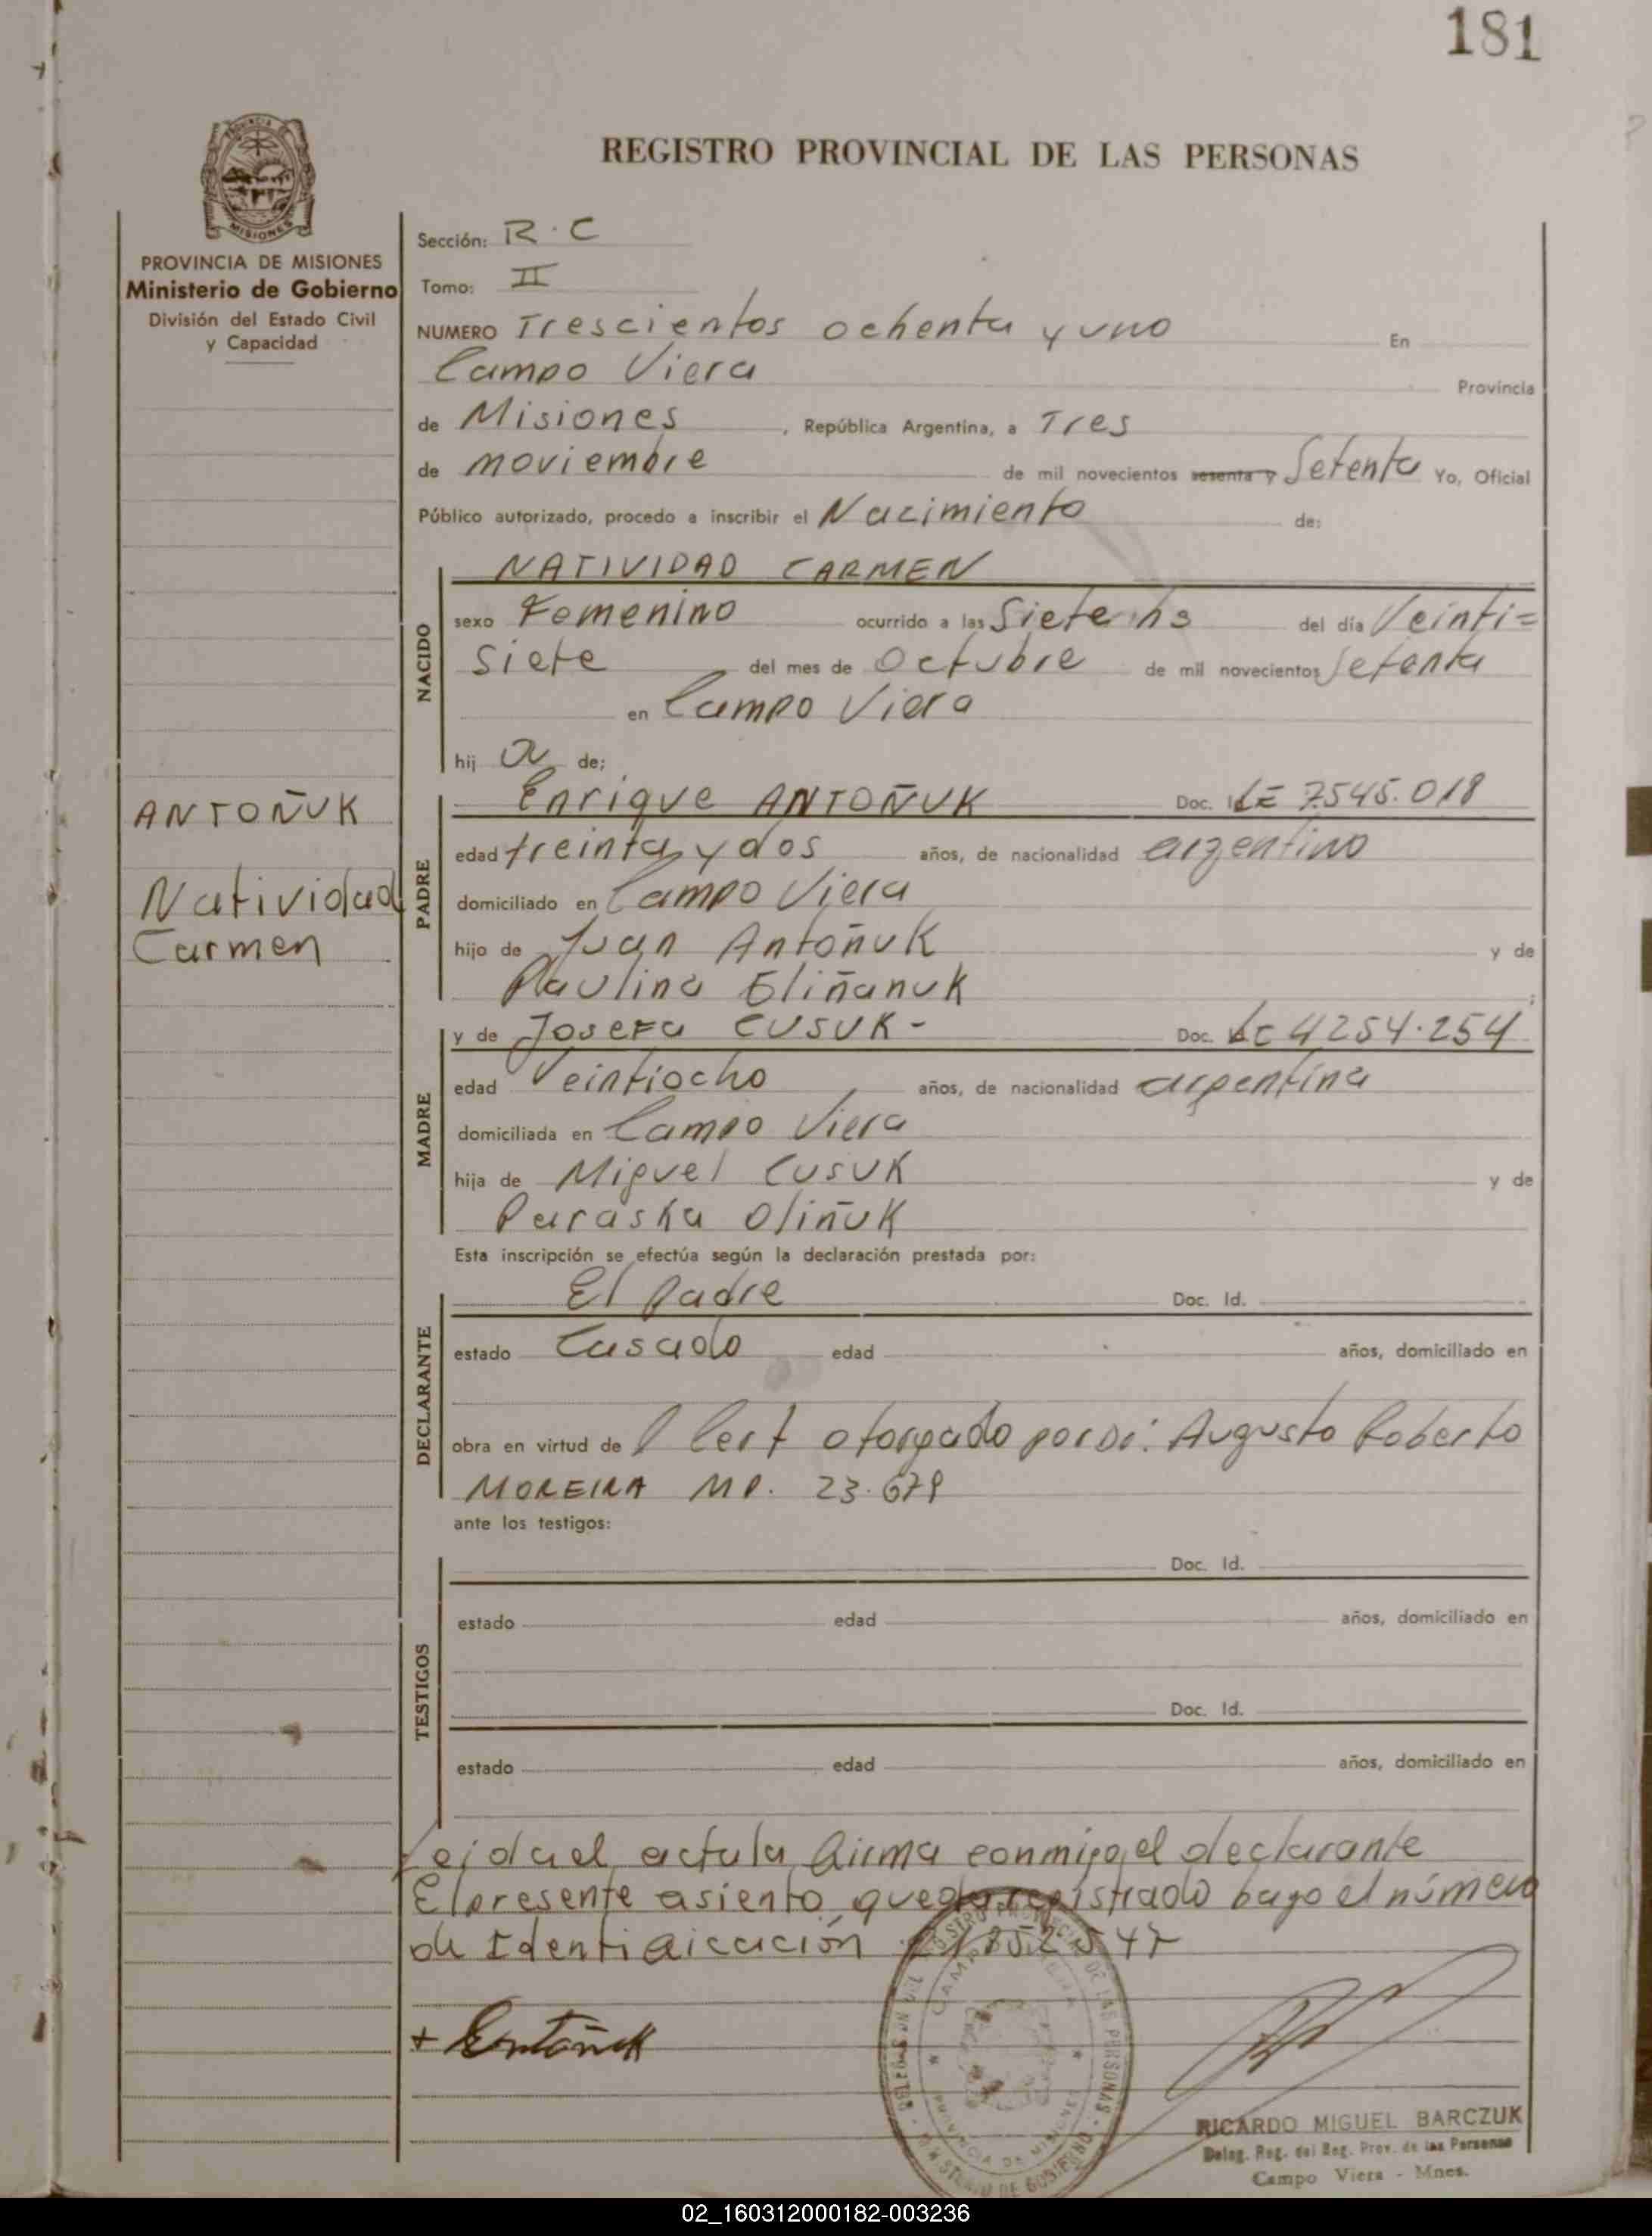 181
REGISTRO PROVINCIAL DE LAS PERSONAS
PROVINCIA DE
MISIONES
PROVINCIA DE MISIONES
Ministerio de Gobierno
División del Estado Civil
y Capacidad
Sección: R.C
Tomo: II
NUMERO Trescientos ochenta y uno En
Campo Viera Provincia
de Misiones, República Argentina, a Tres
de noviembre de mil novecientos sesenta y Setenta Yo, Oficial
Público autorizado, procedo a inscribir el Nacimiento de:
NACIDO
NATIVIDAD CARMEN
sexo Femenino ocurrido a las Siete hs del día Veinti=
siete del mes de Octubre de mil novecientos setenta
en Campo Viera
hij a de;
ANTOÑUK
Natividad
Carmen
PADRE
Enrique ANTOÑUK Doc. LE 7.545.018
edad treinta y dos años, de nacionalidad argentino
domiciliado en Campo Viera
hijo de Juan Antoñuk y de
Paulina Eliñanuk;
MADRE
y de Josefa CUSUK- Doc. LC 4254.254
edad Veintiocho años, de nacionalidad argentina
domiciliada en Campo Viera
hija de Miguel Cusuk y de
Paraska Oliñuk
Esta inscripción se efectúa según la declaración prestada por:
DECLARANTE
El padre Doc. Id.
estado Casado edad años, domiciliado en
obra en virtud de Cert otorgado por Dr. Augusto Roberto
MOREIRA MP. 23.679
ante los testigos:
TESTIGOS
Doc. Id.
estado edad años, domiciliado en
Doc. Id.
estado edad años, domiciliado en
Leida el acta la firma conmigo el declarante
El presente asiento queda registrado bajo el número
de Identificación
+ Entoñuk
RICARDO MIGUEL BARCZUK
Deleg. Reg. del Reg. Prov. de las Personas
Campo Viera - Mnes.
02_160312000182-003236